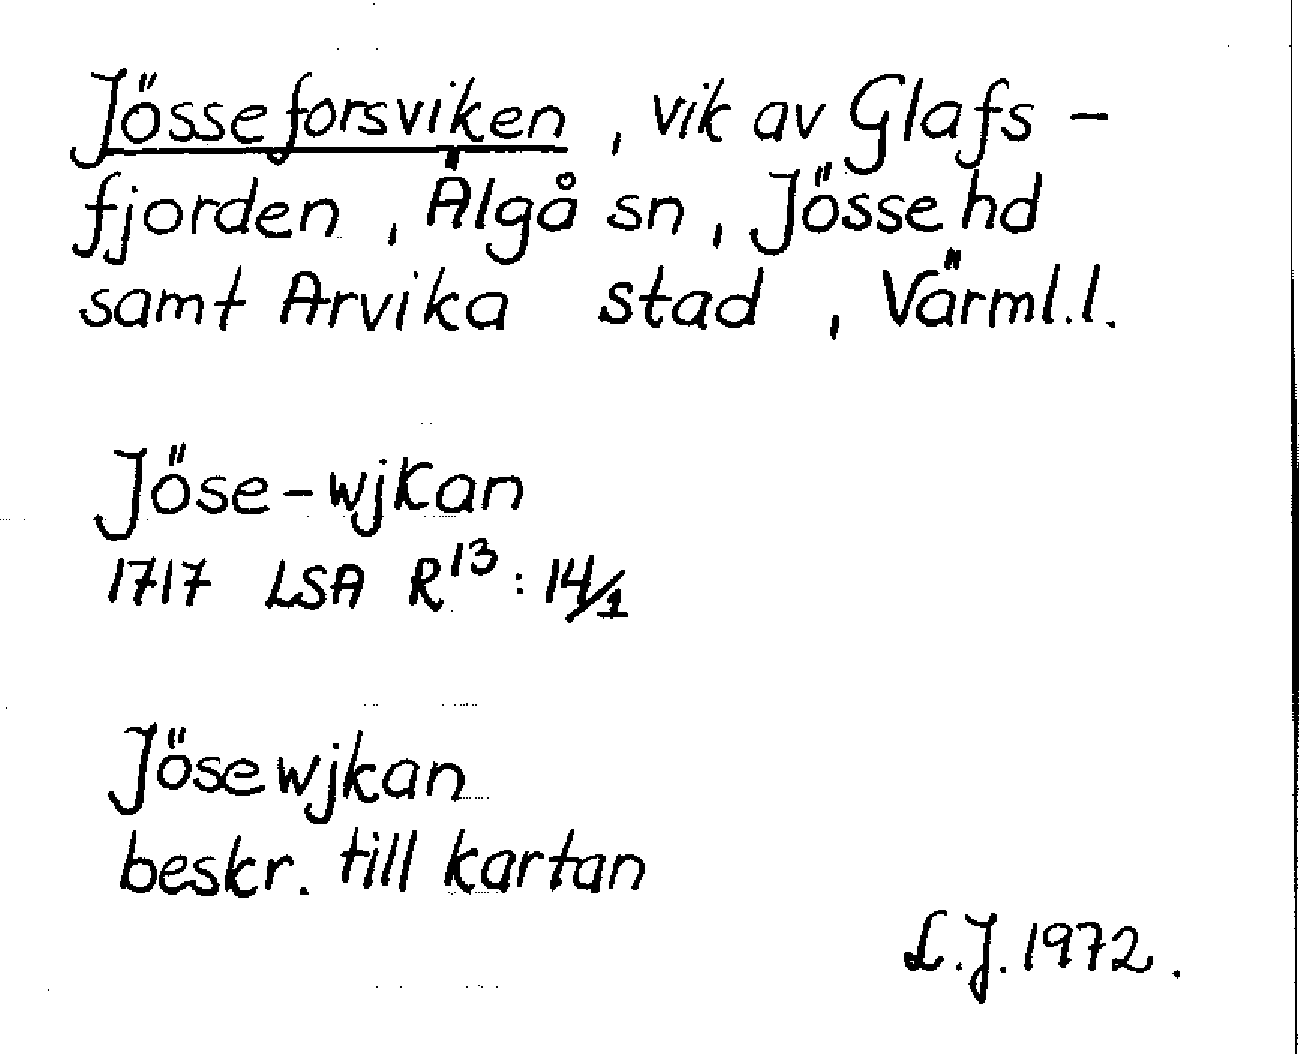 Jösseforsviken, vik av Glafs-
fjorden, Älgå sn, Jösse hd
samt Arvika stad, Värml.l.
Jöse-wjkan
1717 LSA R¹³: 14/1
Jösewjkan
beskr. till kartan
L.J. 1972.